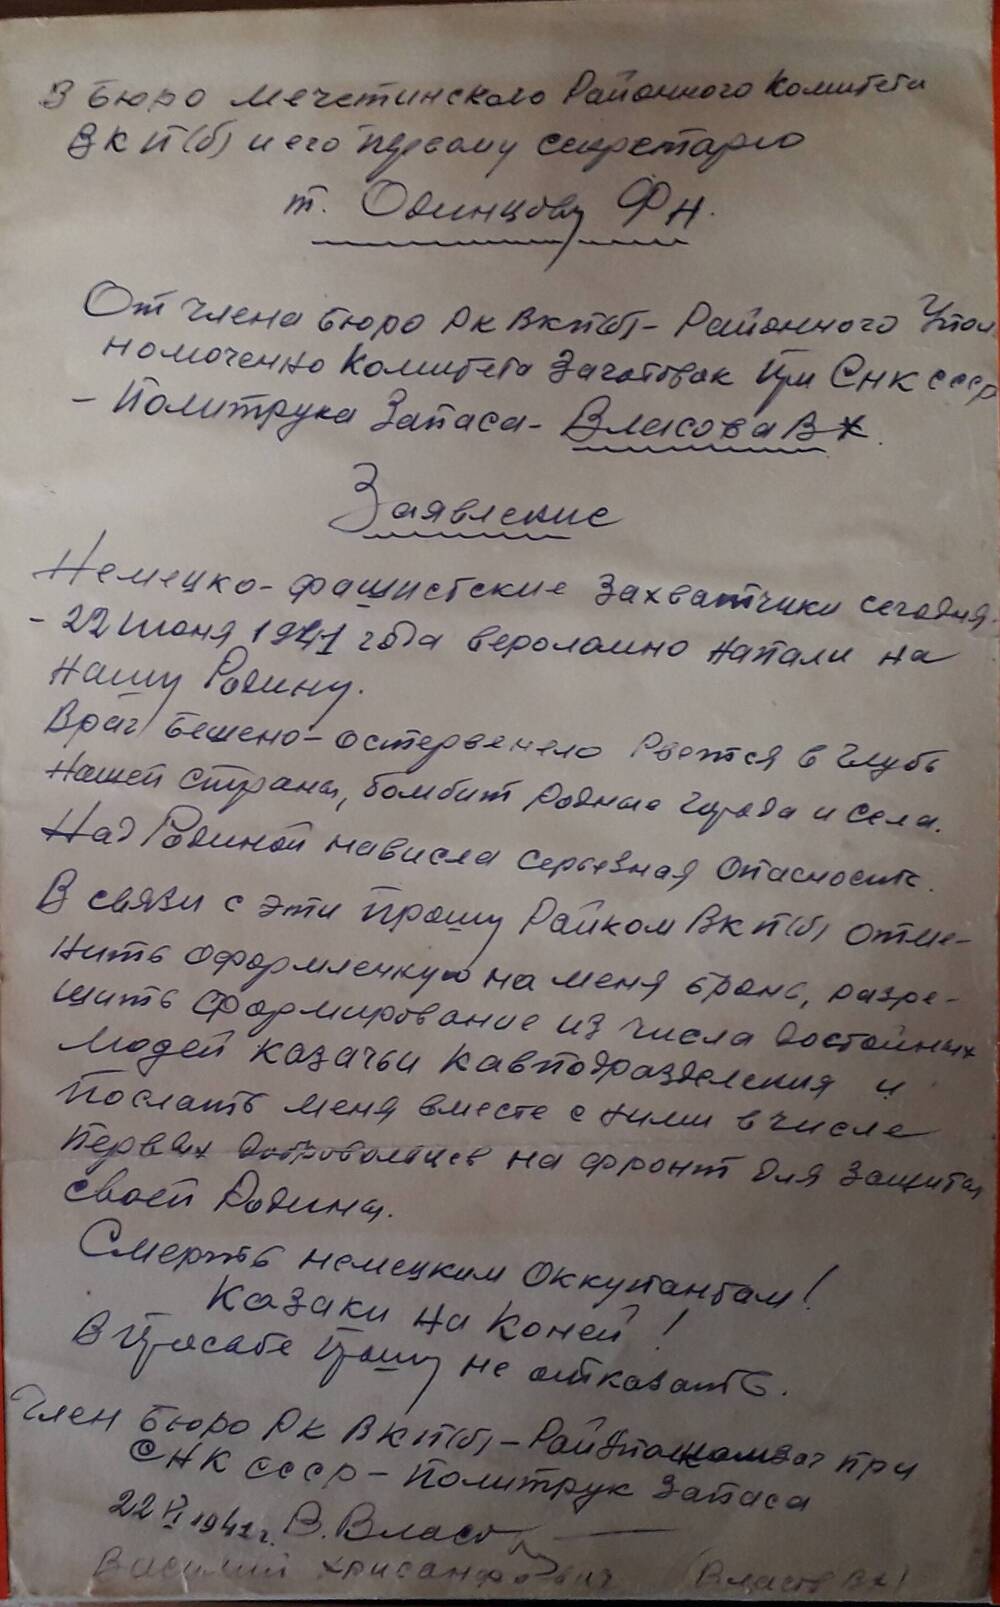 В бюро мечетинского Районного комитета
ВКП(б) и его первому секретарю
т. Одинцову Ф.Н.
От члена бюро РК ВКП(б) - Районного упол
номоченно комитета Заготовок при СНК СССР
- Политрука Запаса - В.Ж.
Заявление
Немецко-фашистские захватчики сегодня
- 22 июня 1941 года вероломно напали на
Нашу Родину.
Враг бешено-остервенело рвется в глубь
Нашей страны, бомбит родные города и села.
Над Родиной нависла серьезная опасность.
В связи с эти прошу Райком ВКП(б), отме-
нить оформленную на меня бронь, разре-
шить формирование из числа достойных
людей казачьи кавподразделения и
Послать меня вместе с ними в числе
первых добровольцев на фронт для защиты
своей Родины.
Смерть немецким оккупантам!
Казаки на коней!
В просьбе прошу не отказать.
Член бюро РК ВКП(б) - при
СНК СССР - Политрук запаса
22 1941 г. В. Власов
Хрисанфович